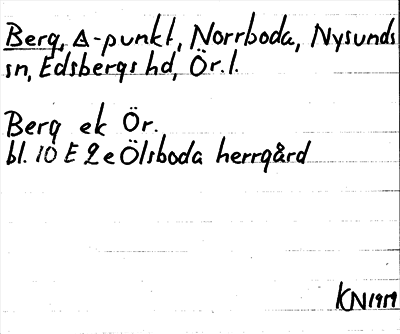 Berg, △-punkt, Norrboda, Nysunds
sn, Edsbergs hd, Ör. l.
Berg ek Ör.
bl. 10 E 2 e Ölsboda herrgård
KN 1979